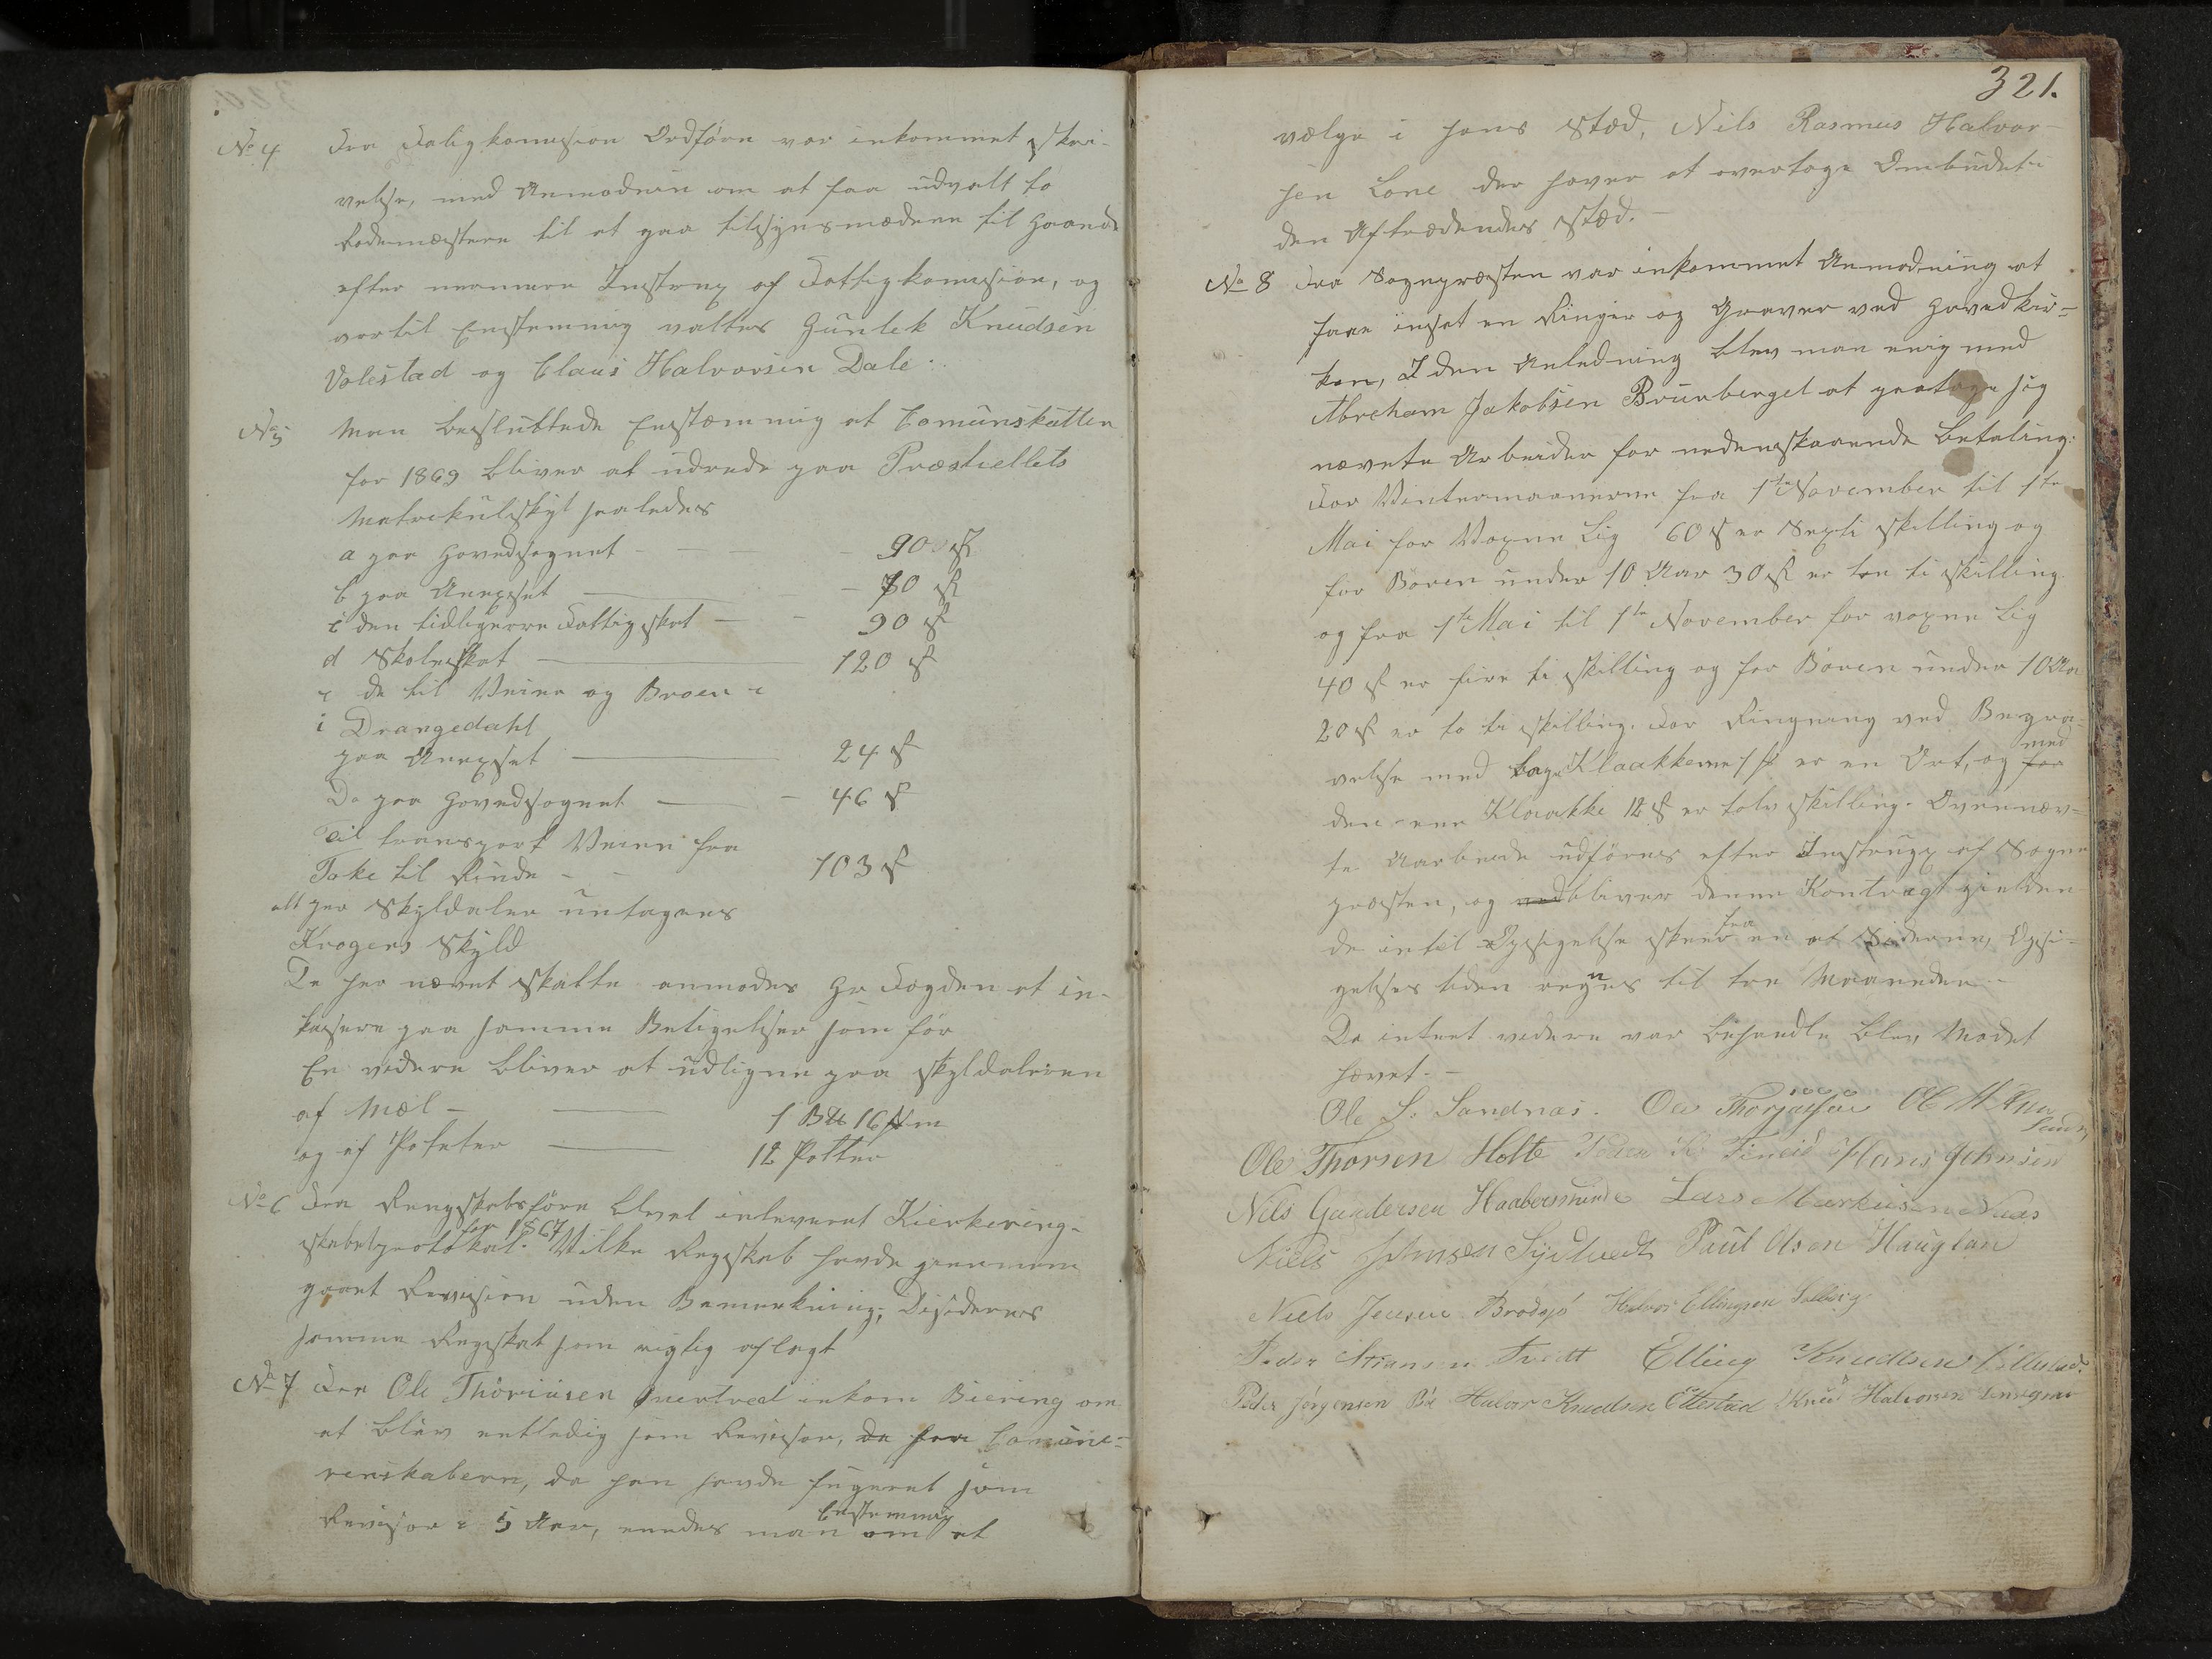 No 4 Fra Fatigkomision Ordføre var inkommet skri-
velse, med Anmodnin om at faa udvalt to
Rodemæstere til et gaa tilsynsmædene til Haande
efter nermere Instrux af Fattigkomision, og
vortil Enstemmig valtes Gunlek Knudsen
Volestad og Claus Halvorsen Dale.
No 5 Man besluttede Enstæmmig at Comunskatten
for 1869 bliver at udrede paa Præstiellets
Matrikulskyl saaledes
a paa Hovedsognet - 90 ſk
b paa Anexset - 70 ſk
c den tidligerre Fattigskat - 90 ſk
d Skoleskat - 120 ſk
e de til Veier og Broer
i Drangedahl
paa Anexset - 24 ſk
Do paa Hovedsognet - 46 ſk
Til transport Veien fra
Toke til Rinde - 103 ſk
alt per Skyldaler untagens
Krogers Skyld
De her nævnt skatte anmodes Hr Fogden at in-
kasere paa samme Betigelser som før
En videre bliver at udligne paa skyldaleren
af Mæl - 1 B 16 m
og af Poteter - 12 Potter
No 6 Fra Rengskabsføre blvet inleveret Kierkereng-
skabsprotokal for 1867. Vilke Regskab havde gienem
gaaet Revision uden Bemerkning; Disideres
samme Regskab som rigtig aflagt
No 7 Fra Ole Thoriusen Qvertved inkom Biering om
at bliv entledig som Revisor, da fra Comune-
renskabern, da han havde fugeret som
Revisor i 5 Aar, enedes man Enstemmig om at
321.
vælge i hans Stæd, Nils Rasmus Halvor-
sen Lone der haver at overtage Ombudet i
den Aftrædendes stæd. -
No 8 Fra Sognepræsten var inkommet Anmodning at
faae insat en Ringer og Graver ved Hovedkir-
ken, I den Anledning blev man enig med
Abreham Jakobsen Brunberget at paatage sig
nævnte Arbeider for nedenstaaende Betaling:
For Vintermaanerne fra 1te November til 1te
Mai for Voxne Lig 60 ſk er Sexti skilling og
for Børen under 10 Aar 30 ſk er tre ti skilling
og fra 1te Mai til 1te November for voxne Lig
40 ſk er fire ti skilling og for Børen under 10 Aar
20 ſk er to ti skilling. For Ringning ved Begra-
velse med bege Klaakkerne 1 ſk er en Ort, og med for
den ene Klaakke 12 ſk er tolv skilling. Ovennæv-
te Aarbeide udføres efter Instrugx af Sogne
præsten, og ved bliver denne Kontragt gielden
de intil Opsigelse skeer fra en af Siderne, Opsi-
gelses tiden regnes til tre Maaneder -
Da intet videre var behandle blev Mødet
hævet. -
Ole S. Sandnæs. Ole
Ole Thorsen Holte Hans Johnsen
Nils Gundersen Haabesmunde Lars Markusen Næs
Niels Johnsen Paul Olsen Hauglan
Niels Jensen Brødsjø Halvor Ellingsen Solberg
Peder Tvedt Elling Knudsen
Peder Jørgensen Bö Halvor Knudsen Ettestad Knud Halvorsen